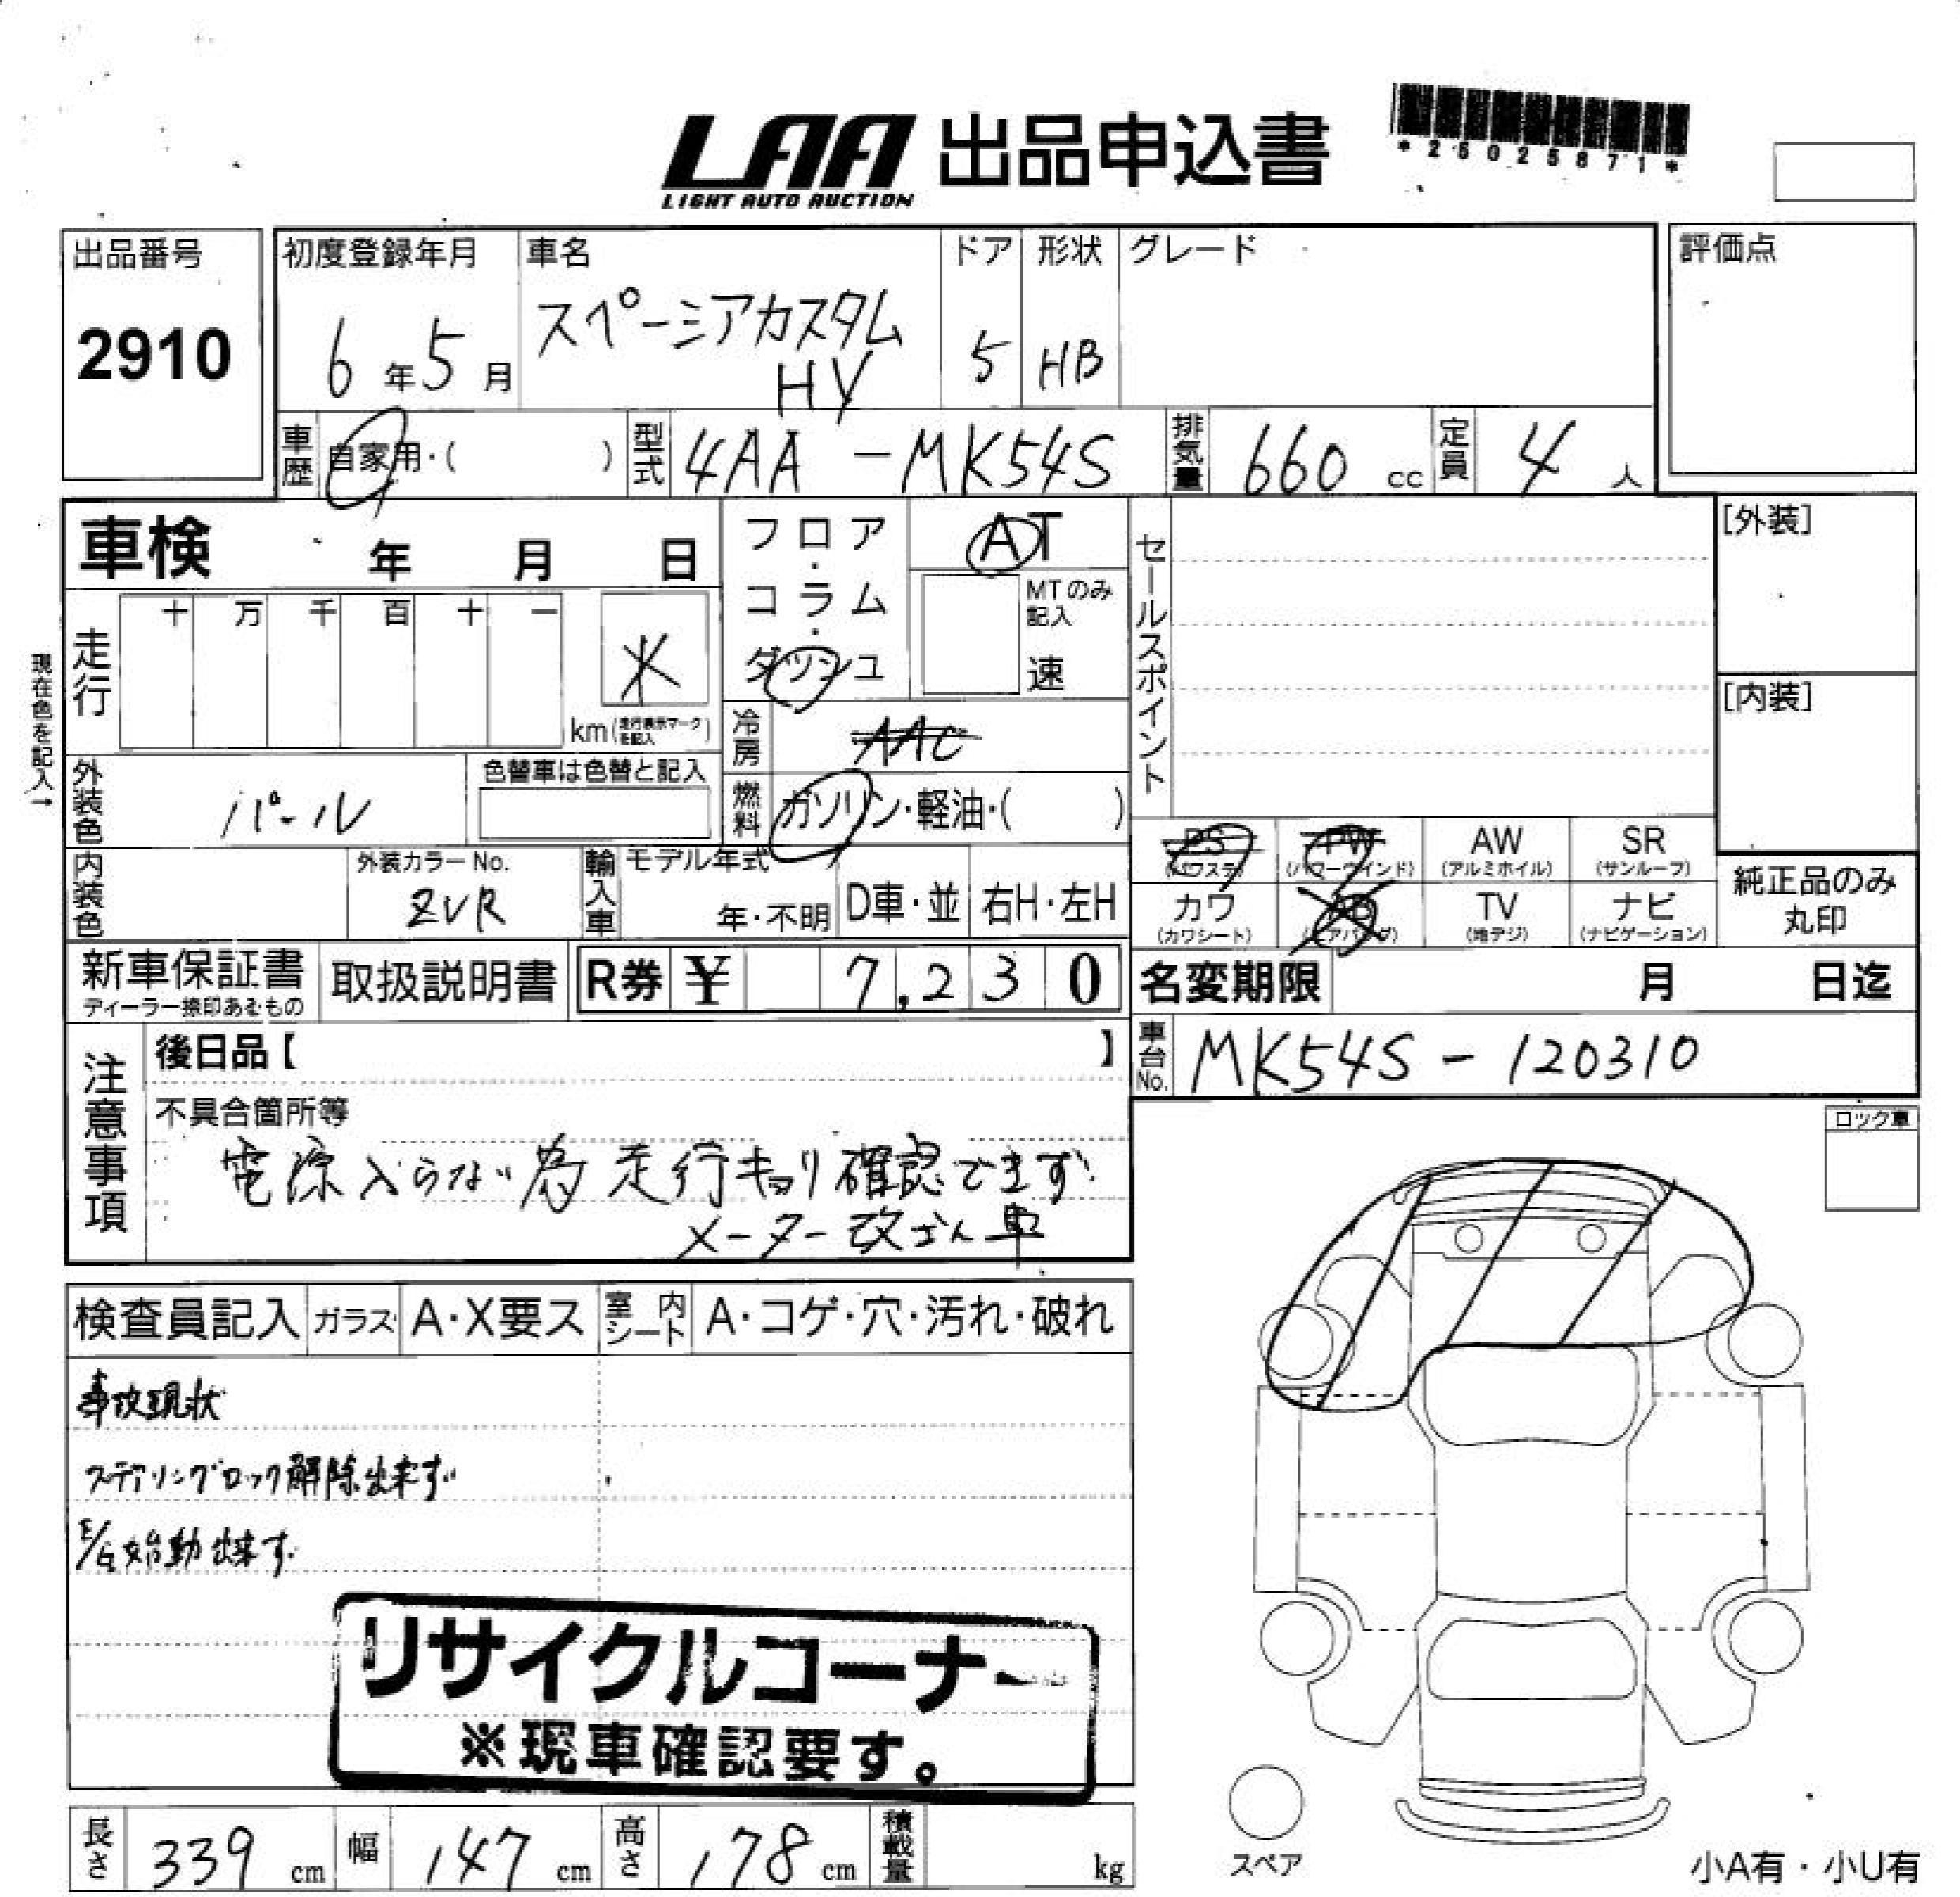 LAA 出品申込書
LIGHT AUTO AUCTION
*25025871*
出品番号
2910
初度登録年月
6年5月
車名
スペーシアカスタム
HY
ドア
5
形状
HB
グレード
評価点
車歴
自家用・( )
型式
4AA-MK54S
排気量
660 cc
定員
4 人
車検 年 月 日
フロア・コラム・ダッシュ
AT
MTのみ記入
速
セールスポイント
[外装]
[内装]
現在色を記入→
走行
十 万 千 百 十 一
km(走行表示マークを記入)
冷房
AAC
外装色
パール
色替車は色替と記入
燃料
ガソリン・軽油・( )
PS (パワステ)
PW (パワーウインド)
AW (アルミホイル)
SR (サンルーフ)
カワ (カワシート)
AB (エアバッグ)
TV (地デジ)
ナビ (ナビゲーション)
純正品のみ
丸印
内装色
外装カラーNo.
ZVR
輸入車
モデル年式
年・不明
D車・並
右H・左H
新車保証書
ディーラー捺印あるもの
取扱説明書
R券 ¥ 7,230
名変期限 月 日迄
注意事項
後日品【 】
車台No.
MK54S-120310
不具合箇所等
電源入らない為 走行キョリ確認できず
メーター改ざん車
ロック車
検査員記入
ガラス
A・X要ス
室内シート
A・コゲ・穴・汚れ・破れ
事故現状
ステアリングロック解除出来ず
E/G始動出来ず
リサイクルコーナー
※現車確認要す。
長さ
339 cm
幅
147 cm
高さ
178 cm
積載量
kg
スペア
小A有・小U有